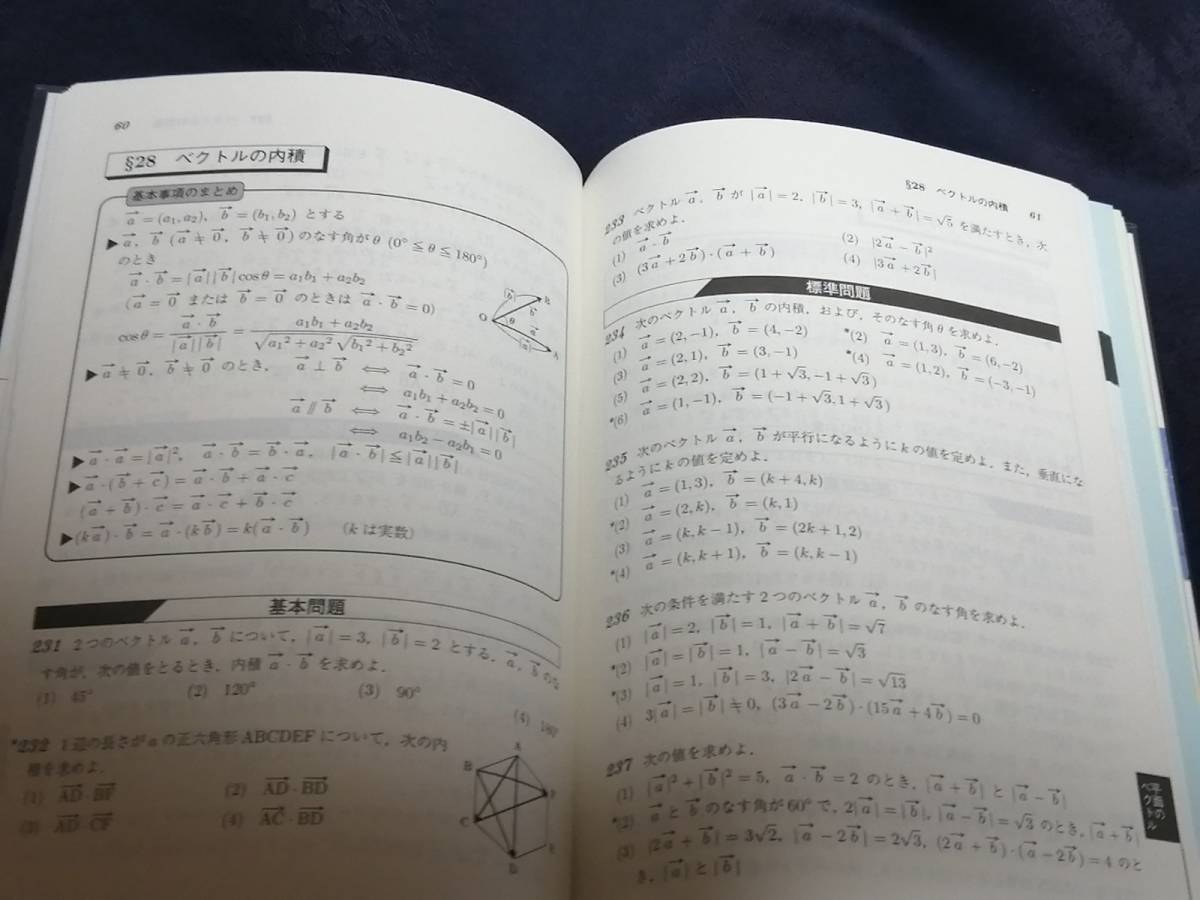 60
§28 ベクトルの内積
基本事項のまとめ
a⃗ = (a₁, a₂), b⃗ = (b₁, b₂) とする
▶ a⃗, b⃗ (a⃗ ≠ 0⃗, b⃗ ≠ 0⃗) のなす角が θ (0° ≦ θ ≦ 180°)
のとき
a⃗・b⃗ = |a⃗||b⃗|cosθ = a₁b₁ + a₂b₂
(a⃗ = 0⃗ または b⃗ = 0⃗ のときは a⃗・b⃗ = 0)
cosθ = a⃗・b⃗ / |a⃗||b⃗| = a₁b₁ + a₂b₂ / √(a₁² + a₂²) √(b₁² + b₂²)
|b⃗| B b⃗ O θ a⃗ |a⃗| A
▶ a⃗ ≠ 0⃗, b⃗ ≠ 0⃗ のとき, a⃗ ⊥ b⃗ ⟺ a⃗・b⃗ = 0
⟺ a₁b₁ + a₂b₂ = 0
a⃗ // b⃗ ⟺ a⃗・b⃗ = ±|a⃗||b⃗|
⟺ a₁b₂ − a₂b₁ = 0
▶ a⃗・a⃗ = |a⃗|², a⃗・b⃗ = b⃗・a⃗, |a⃗・b⃗| ≦ |a⃗||b⃗|
▶ a⃗・(b⃗ + c⃗) = a⃗・b⃗ + a⃗・c⃗
(a⃗ + b⃗)・c⃗ = a⃗・c⃗ + b⃗・c⃗
▶ (ka⃗)・b⃗ = a⃗・(kb⃗) = k(a⃗・b⃗) (k は実数)
基本問題
231 2つのベクトル a⃗, b⃗ について, |a⃗| = 3, |b⃗| = 2 とする. a⃗, b⃗ のな
す角が, 次の値をとるとき, 内積 a⃗・b⃗ を求めよ.
(1) 45° (2) 120° (3) 90° (4) 180°
*232 1辺の長さが a の正六角形 ABCDEF について, 次の内
積を求めよ.
(1) AD・BF (2) AD・BD
(3) AD・CF (4) AC・BD
A B F C E D
§28 ベクトルの内積 61
233 ベクトル a⃗, b⃗ が |a⃗| = 2, |b⃗| = 3, |a⃗ + b⃗| = √5 を満たすとき, 次
の値を求めよ.
(1) a⃗・b⃗ (2) |2a⃗ − b⃗|²
(3) (3a⃗ + 2b⃗)・(a⃗ + b⃗) (4) |3a⃗ + 2b⃗|
標準問題
234 次のベクトル a⃗, b⃗ の内積, および, そのなす角 θ を求めよ.
(1) a⃗ = (2, −1), b⃗ = (4, −2) *(2) a⃗ = (1, 3), b⃗ = (6, −2)
(3) a⃗ = (2, 1), b⃗ = (3, −1) *(4) a⃗ = (1, 2), b⃗ = (−3, −1)
(5) a⃗ = (2, 2), b⃗ = (1 + √3, −1 + √3)
*(6) a⃗ = (1, −1), b⃗ = (−1 + √3, 1 + √3)
235 次のベクトル a⃗, b⃗ が平行になるように k の値を定めよ. また, 垂直にな
るように k の値を定めよ.
(1) a⃗ = (1, 3), b⃗ = (k + 4, k)
*(2) a⃗ = (2, k), b⃗ = (k, 1)
(3) a⃗ = (k, k − 1), b⃗ = (2k + 1, 2)
*(4) a⃗ = (k, k + 1), b⃗ = (k, k − 1)
236 次の条件を満たす2つのベクトル a⃗, b⃗ のなす角を求めよ.
(1) |a⃗| = 2, |b⃗| = 1, |a⃗ + b⃗| = √7
*(2) |a⃗| = |b⃗| = 1, |a⃗ − b⃗| = √3
*(3) |a⃗| = 1, |b⃗| = 3, |2a⃗ − b⃗| = √13
(4) 3|a⃗| = |b⃗| ≠ 0, (3a⃗ − 2b⃗)・(15a⃗ + 4b⃗) = 0
237 次の値を求めよ.
(1) |a⃗|² + |b⃗|² = 5, a⃗・b⃗ = 2 のとき, |a⃗ + b⃗| と |a⃗ − b⃗|
*(2) a⃗ と b⃗ のなす角が 60° で, 2|a⃗| = |b⃗|, |a⃗ − b⃗| = √3 のとき, |a⃗ + b⃗|
(3) |2a⃗ + b⃗| = 3√2, |a⃗ − 2b⃗| = 2√3, (2a⃗ + b⃗)・(a⃗ − 2b⃗) = 4 のと
き, |a⃗| と |b⃗|
平面のベクトル